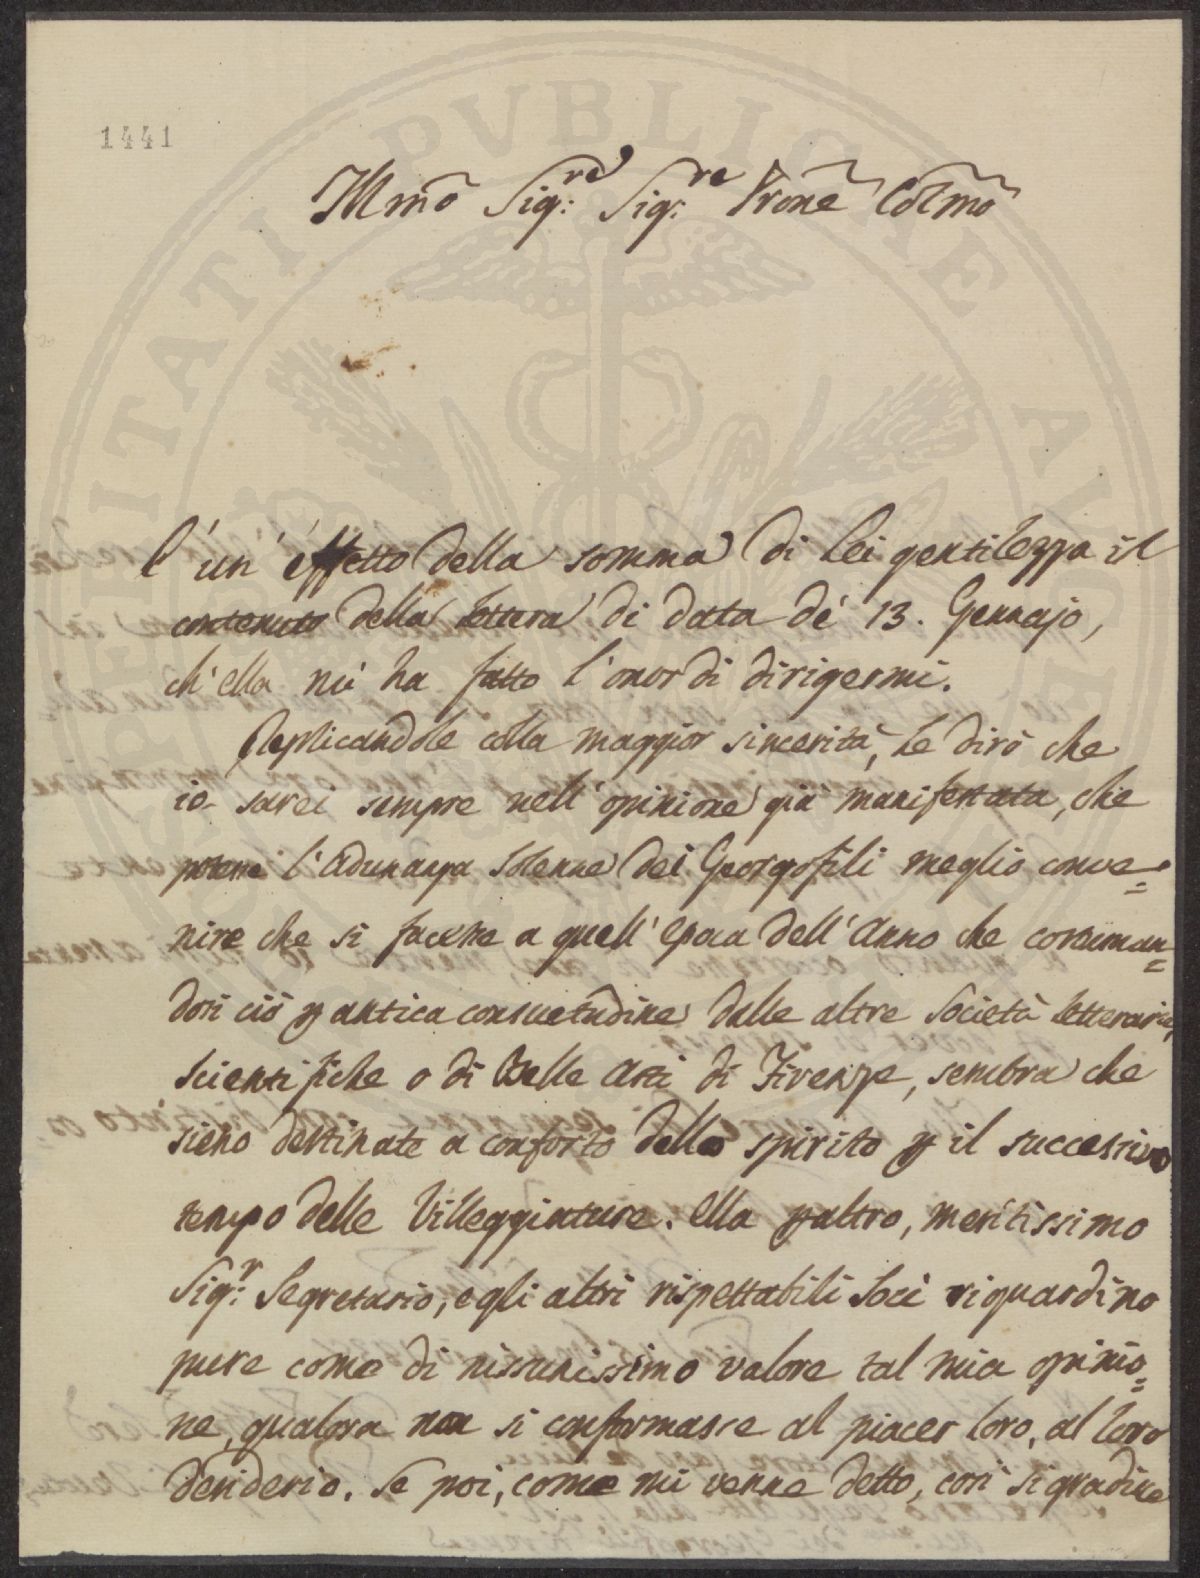 1441
Illmo Sigre: Sigre: Prone Colmo
È un' effetto della somma di Lei gentilezza il
contenuto della lettera di data dè 13. Gennajo,
ch' ella mi ha fatto l' onor di dirigermi.
Replicandole colla maggior sincerità, Le dirò che
io sarei sempre nell' opinione già manifestata, che
potesse l' Adunanza Solenne dei Georgofili meglio conve=
nire che si facesse a quell' epoca dell' Anno che costuman=
dosi ciò p antica consuetudine dalle altre Società letterarie,
scientifiche o di Belle Arti di Firenze, sembra che
sieno destinate a conforto dello spirito p il successivo
tempo delle Villeggiature. Ella paltro, meritissimo
Sigr: Segretario, e gli altri rispettabili Socj riguardino
pure come di nissunissimo valore tal mia opinio=
ne, qualora non si conformasse al piacer loro, al loro
desiderio. Se poi, come mi venne detto, così si gradisce
SPERITATI PVBLICAE AVGENDAE